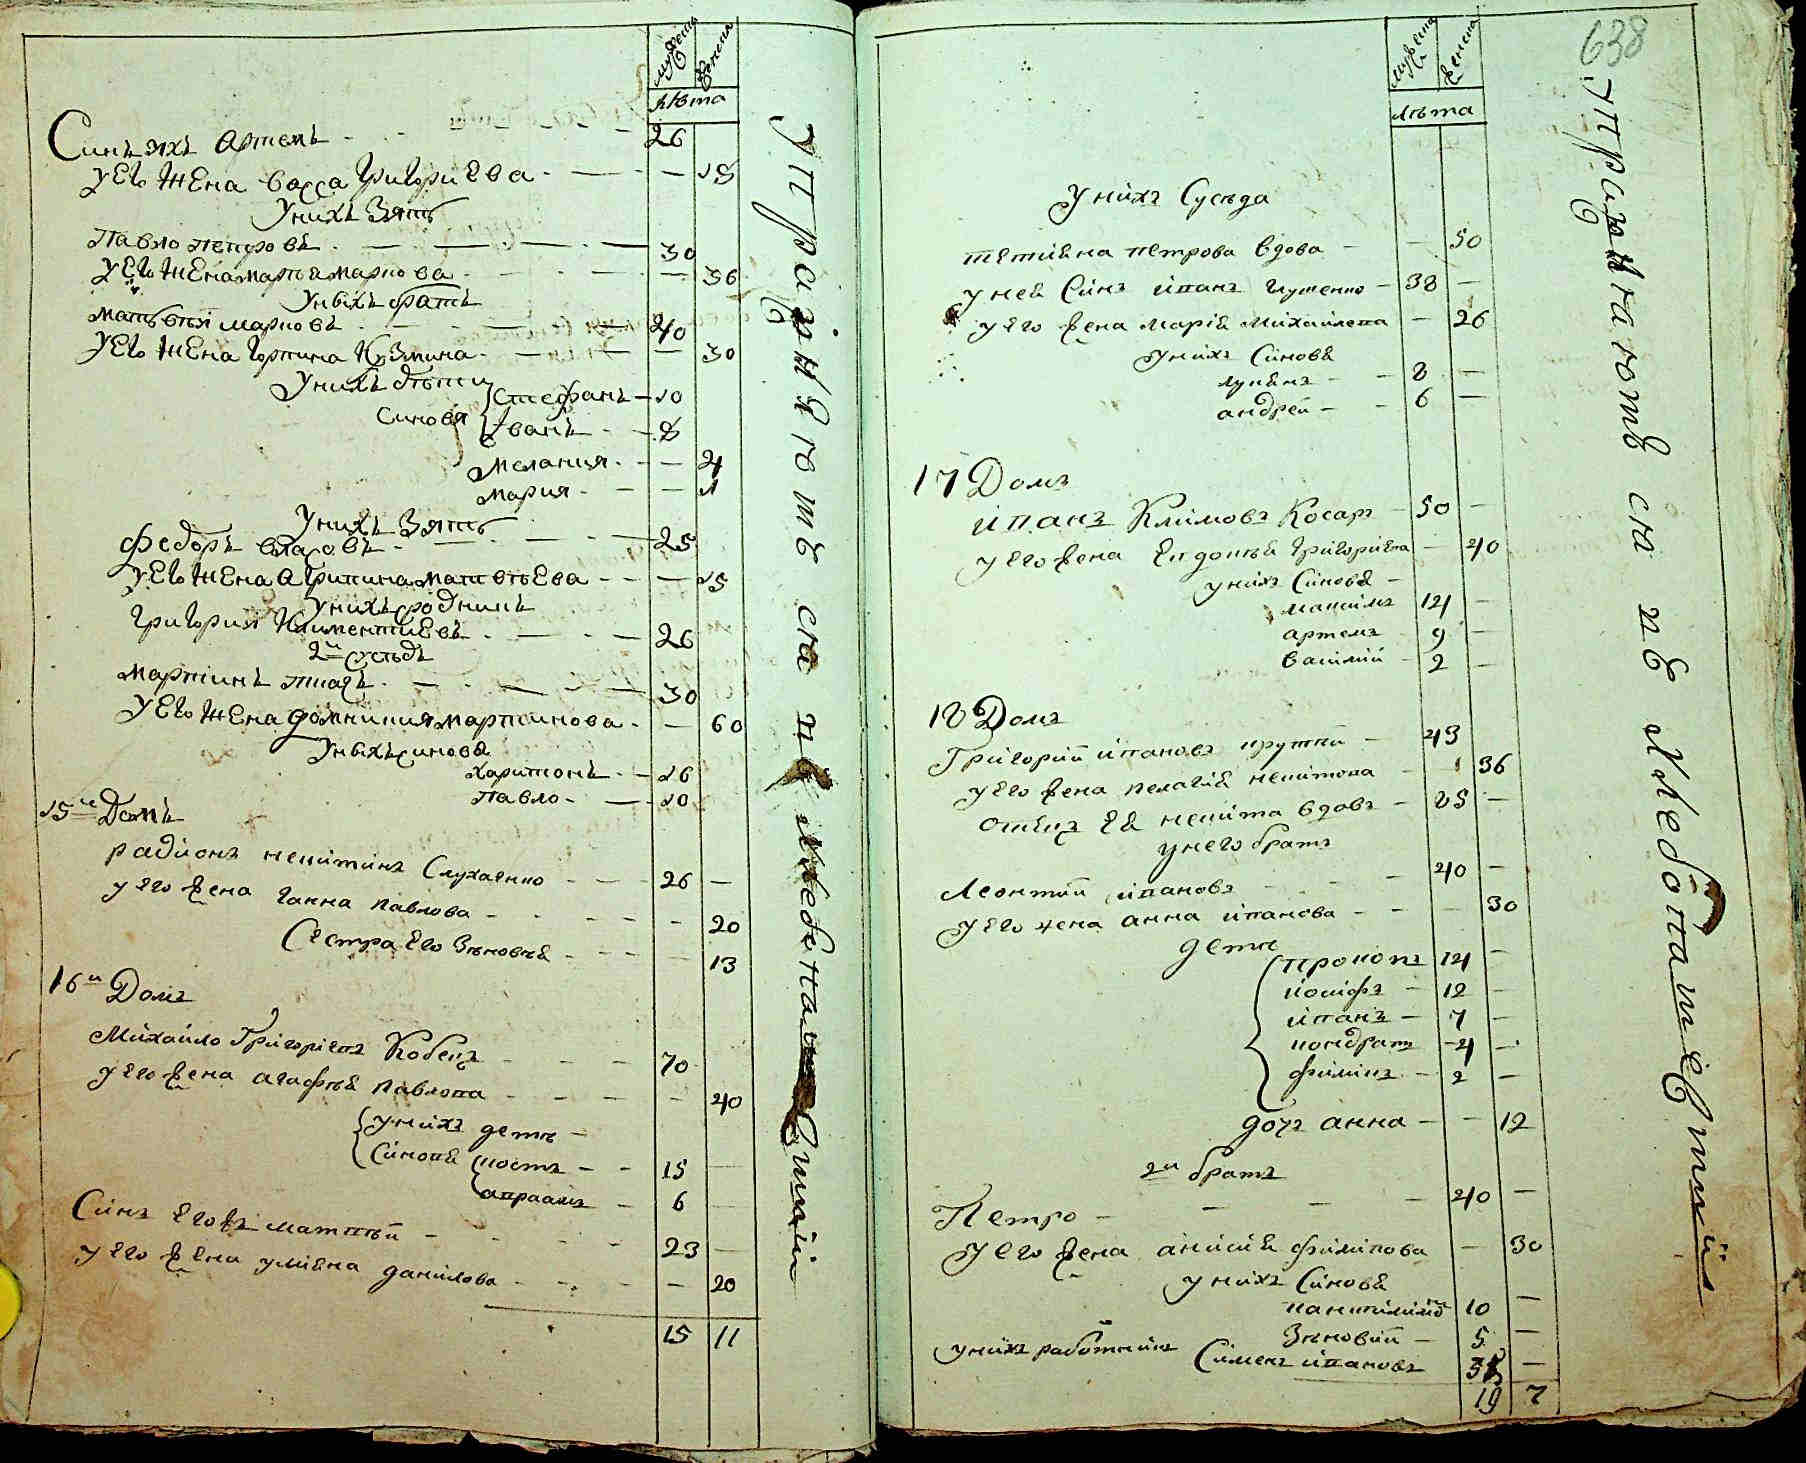 мужеска
женска
лѣта
Синъ ихъ Артемъ 26
У Его жена Васса Григориева 18
У нихъ Зять
Павло петровъ 30
У Его жена марья маркова 36
У нихъ братъ
Матьвѣй марковъ 40
У Его жена Горпина Кузмина 30
У нихъ дѣти
Синовя Стефанъ 10
Иванъ 8
Мелания 4
Мария 1
У нихъ Зять
Федоръ Власовъ 25
У Его жена Агрипина матвѣева 15
У нихъ родникъ
Григорий Климентиевъ 26
2й сусѣдъ
Мартинъ ткачъ 30
У Его жена домникия мартинова 60
У нихъ синовя
Харитонъ 16
Павло 10
15й Домъ
Радионъ никитинъ Слухаенко 26
у Его жена ганна павлова 20
Сестра Его Зѣновѣя 13
16й Домъ
Михайло Григориевъ Кобецъ 70
у Его жена агафѣя павлова 40
у нихъ дети
Синовя костъ 15
авраамъ 6
Синъ Его жъ матвѣй 23
у Его жена улияна данилова 20
15 11
Управляютъ ся въ
638
мужеска
женска
лѣта
у нихъ Сусѣда
тетияна петрова вдова 50
у ней Синъ иванъ глущенко 38
у Его жена мария михайлова 26
у нихъ Синовя
лукянъ 8
андрей 6
17 Домъ
иванъ Климовъ Косаръ 50
у Его жена Евдокѣя григориева 40
у нихъ Синовя
максимъ 14
артемъ 9
василий 2
18 Домъ
Григорий ивановъ крутий 43
у Его жена пелагия никитова 36
отецъ Ея никита вдовъ 85
у него братъ
Леонтий ивановъ 40
у Его жена анна иванова 30
дети
прокопъ 14
иосифъ 12
иванъ 7
кондратъ 4
филипъ 2
дочъ анна 12
2й братъ
Петро 40
у Его жена анисия филипова 30
у нихъ Синовя
пантилимонъ 10
Зѣновий 5
у нихъ работникъ Сименъ ивановъ
19 7
Управляютъ ся въ